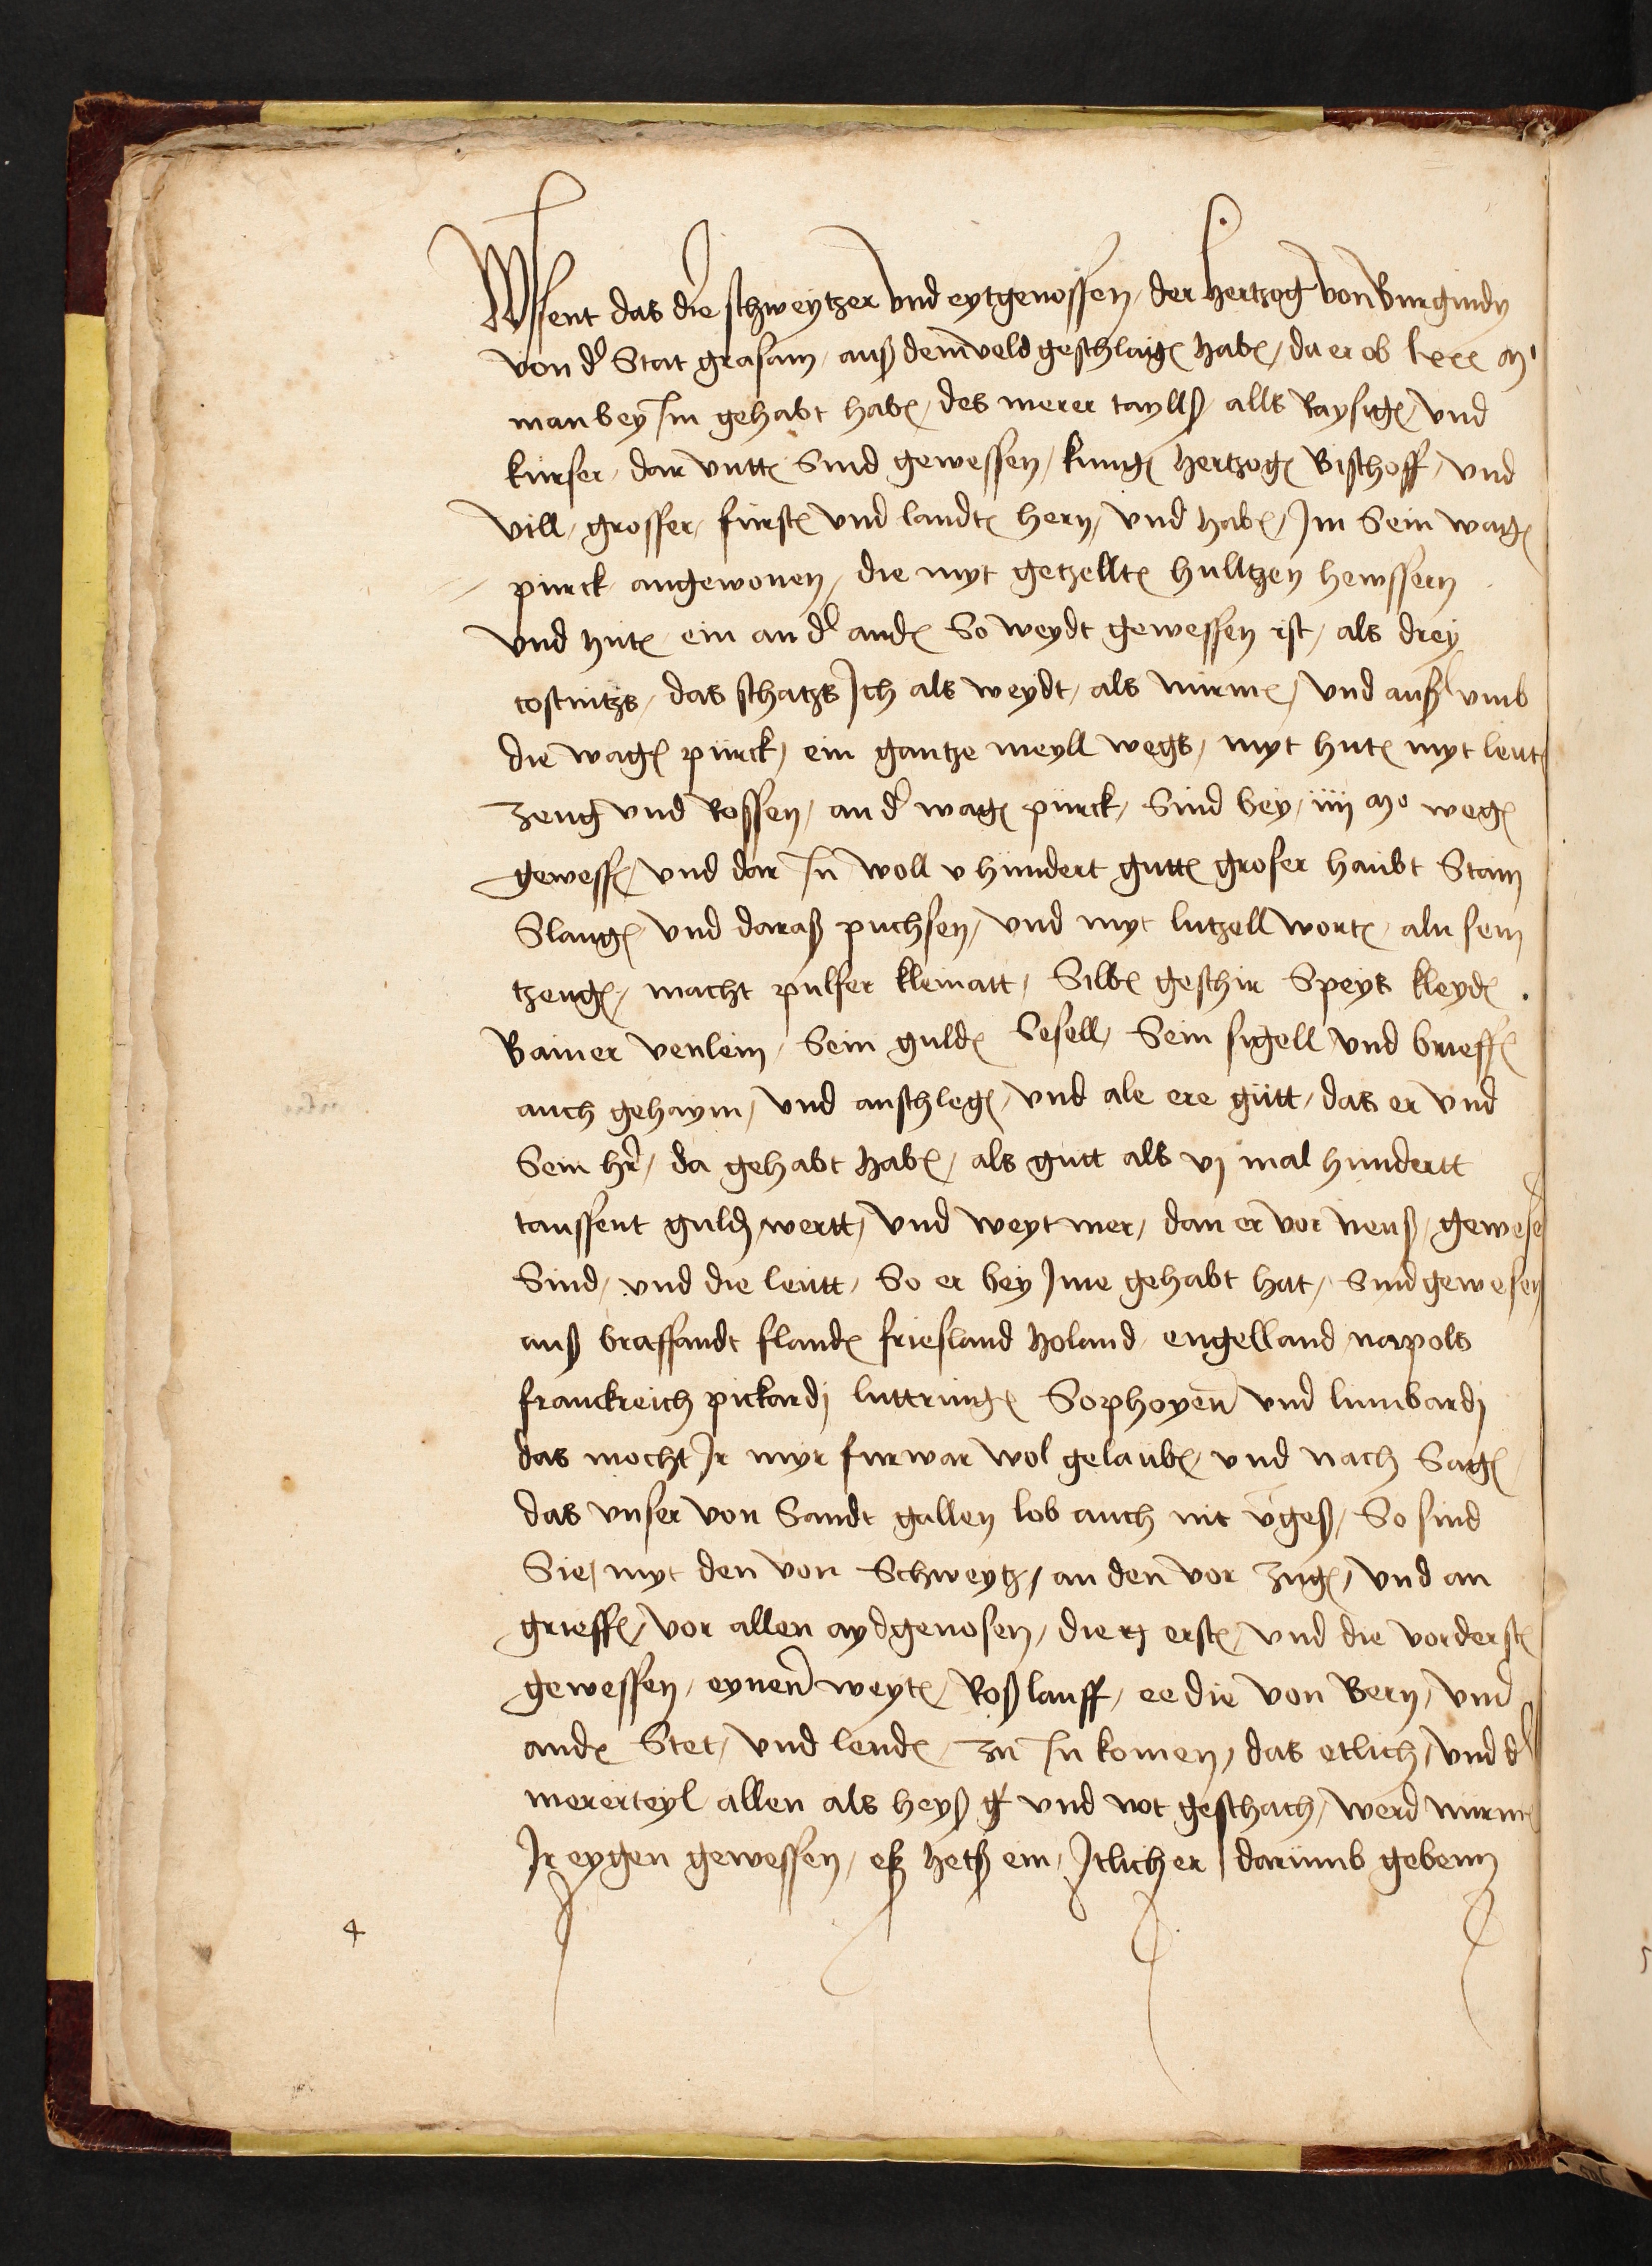 Wyssent das die schweytzer und eytgenossen, der Hertzog von Burgundy
von d' Stat grasam, auß dem veld geschlagn habn, da er ob lxxx M'
man bey Im gehabt habn, des merer tayllß, alls Raysign, und
kurser, dar untn Sind gewessen, kungn Hertzogn Bischoff, und
vill, grosser, furstn und landtn hern, und habn, Im Sein wagn
purck angewonen, die myt getzelltn hulltzen hewssern
und hutn, ein an d' andn So weydt gewessen ist, als drey
costnitzs, das schatzs Ich als weydt, als nurmn, und auß umb
die wagn purck, ein gantze meyll wegs, myt hutn myt leutn
zeug und Rossen, an d' wagn purck, Sind bey, iiii Mo wegn
gewessn, und dar In woll v hundert guttn groser haubt Stain
Slangn und daraß puchsen, und myt lutzell wortn, aln sein
tzeugn, macht pulfer kleinatt, Silbn geschir Speys kleydn
Baner venlein, Sein guldn Sesell, Sein sigell und brieffn
auch gehaym, und anschlegn, und ale ere gutt, das er und
Sein hr, da gehabt habn, als gutt als vj mal hundertt
taussent guldn wertt, und weyt mer, dan er vor neuß, gewesen
Sind, und die leutt, So er bey Ime gehabt hat, Sind gewesen
auß braffandt flandn friesland holand, engelland napols
franckreich pickardj luttringn Sophoyen und lumbardj
das mocht Ir myr furwar wol gelaubn, und nach Sagn
das unser von Sandt gallen lob auch nit vgeß, So sind
Sie, myt den von Schweytz, an den vor zugn, und an
grieffn, vor allen aydgenosen, die erstn, und die vorderstn
gewessen, eynen weytn, Roßlauff, ee die von Bern, und
andn Stet, und lendn, zu In komen, das etlich, und d'
mererteyl allen als heyß und not geschach, werd nurmn
Ir eygen gewessen, eß hetß ein, Itlicher darumb gebenn
4